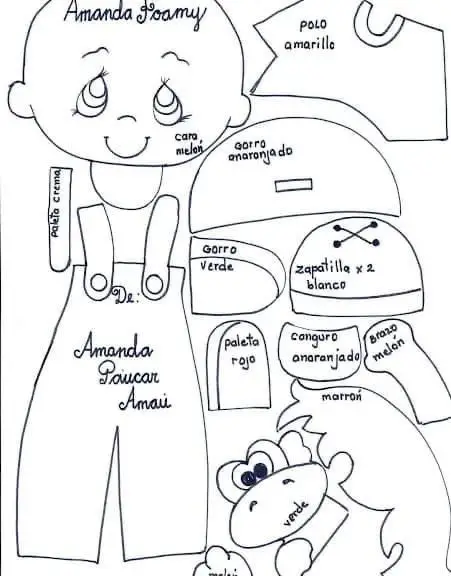 Amanda Foamy
POLO
amarillo
cara
melón
GORRO
anaranjado
paleta crema
GORRO
verde
zapatilla x 2
blanco
De:
Amanda
Paucar
Amaú
paleta
rojo
canguro
anaranjado
BRAZO
melón
marrón
verde
melón